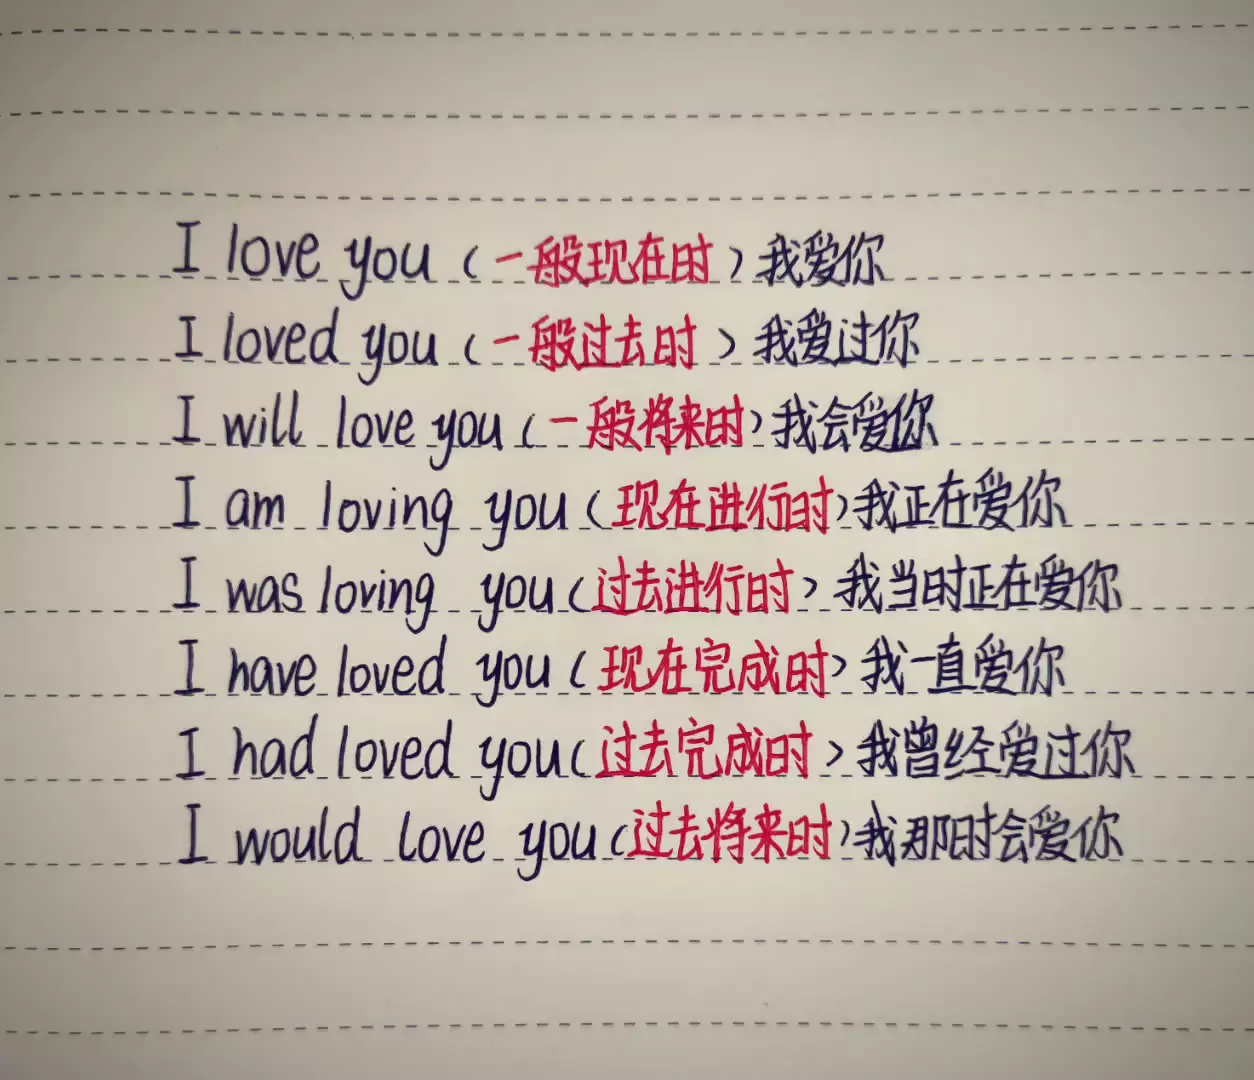 I love you (一般现在时) 我爱你
I loved you (一般过去时) 我爱过你
I will love you (一般将来时) 我会爱你
I am loving you (现在进行时) 我正在爱你
I was loving you (过去进行时) 我当时正在爱你
I have loved you (现在完成时) 我一直爱你
I had loved you (过去完成时) 我曾经爱过你
I would love you (过去将来时) 我那时会爱你